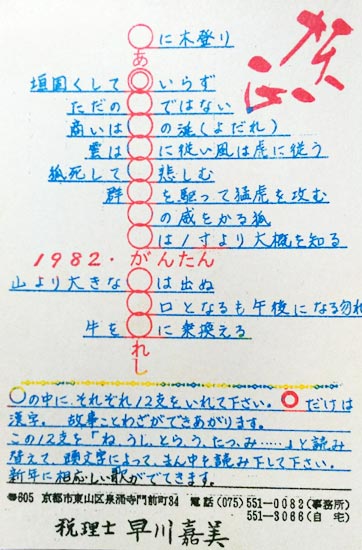 賀正
○に木登り
あ
垣固くして◎いらず
ただの○ではない
商いは○の涎(よだれ)
雲は○に従い風は虎に従う
狐死して○悲しむ
群○を駆って猛虎を攻む
○の威をかる狐
○は1寸より大概を知る
1982・がんたん
山より大きな○は出ぬ
○口となるも午後になる勿れ
牛を○に乗換える
れし
○の中に、それぞれ12支をいれて下さい。◎だけは
漢字。故事ことわざができあがります。
この12支を「ね、うし、とら、う、たつ、み……」と読み
替えて、頭文字によって、まん中を読み下して下さい。
新年に相応しい歌がでてきます。
〒605 京都市東山区泉涌寺門前町34 電話 (075) 551-0082(事務所)
551-3066(自宅)
税理士 早川嘉美